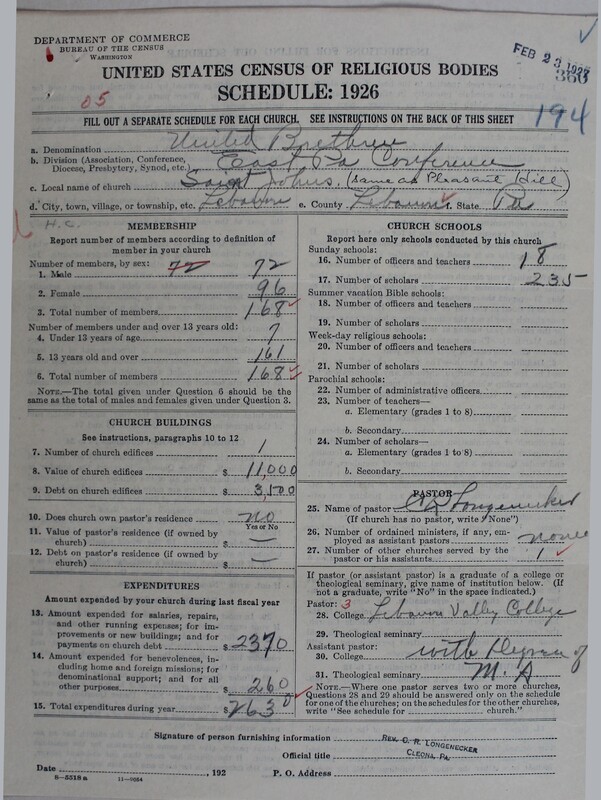 DEPARTMENT OF COMMERCE
BUREAU OF THE CENSUS
WASHINGTON
FEB 23 1927
360
UNITED STATES CENSUS OF RELIGIOUS BODIES
SCHEDULE: 1926
05
194
FILL OUT A SEPARATE SCHEDULE FOR EACH CHURCH. SEE INSTRUCTIONS ON THE BACK OF THIS SHEET
a. Denomination United Brethren
b. Division (Association, Conference, Diocese, Presbytery, Synod, etc.) East Pa Conference
c. Local name of church Saint Johns. (same as Pleasant Hill)
d. City, town, village, or township, etc. Lebanon e. County Lebanon f. State Pa
H.C.
MEMBERSHIP
Report number of members according to definition of
member in your church
Number of members, by sex:
1. Male 72 72
2. Female 96
3. Total number of members 168
Number of members under and over 13 years old:
4. Under 13 years of age 7
5. 13 years old and over 161
6. Total number of members 168
NOTE.—The total given under Question 6 should be
same as the total of males and females given under Question 3.
CHURCH BUILDINGS
See instructions, paragraphs 10 to 12
7. Number of church edifices 1
8. Value of church edifices $ 11,000
9. Debt on church edifices $ 3,500
10. Does church own pastor's residence No
Yes or No
11. Value of pastor's residence (if owned by
church) $ —
12. Debt on pastor's residence (if owned by
church) $ —
EXPENDITURES
Amount expended by your church during last fiscal year
13. Amount expended for salaries, repairs,
and other running expenses; for im-
provements or new buildings; and for
payments on church debt $ 2370
14. Amount expended for benevolences, in-
cluding home and foreign missions; for
denominational support; and for all
other purposes $ 260
15. Total expenditures during year $ 2630
CHURCH SCHOOLS
Report here only schools conducted by this church
Sunday schools:
16. Number of officers and teachers 18
17. Number of scholars 235
Summer vacation Bible schools:
18. Number of officers and teachers
19. Number of scholars
Week-day religious schools:
20. Number of officers and teachers
21. Number of scholars
Parochial schools:
22. Number of administrative officers
23. Number of teachers—
a. Elementary (grades 1 to 8)
b. Secondary
24. Number of scholars—
a. Elementary (grades 1 to 8)
b. Secondary
PASTOR
25. Name of pastor Longenecker
(If church has no pastor, write "None")
26. Number of ordained ministers, if any, em-
ployed as assistant pastors none
27. Number of other churches served by the
pastor or his assistants 1
If pastor (or assistant pastor) is a graduate of a college or
theological seminary, give name of institution below. (If
not a graduate, write "No" in the space indicated.)
Pastor: 3
28. College Lebanon Valley College
29. Theological seminary
Assistant pastor:
30. College with Degree of
31. Theological seminary M.A
NOTE.—Where one pastor serves two or more churches,
Questions 28 and 29 should be answered only on the schedule
for one of the churches; on the schedules for the other churches,
write "See schedule for church."
Signature of person furnishing information REV. C. R. LONGENECKER
Official title CLEONA, PA.
Date , 192 P. O. Address
8—5518a 11—9664